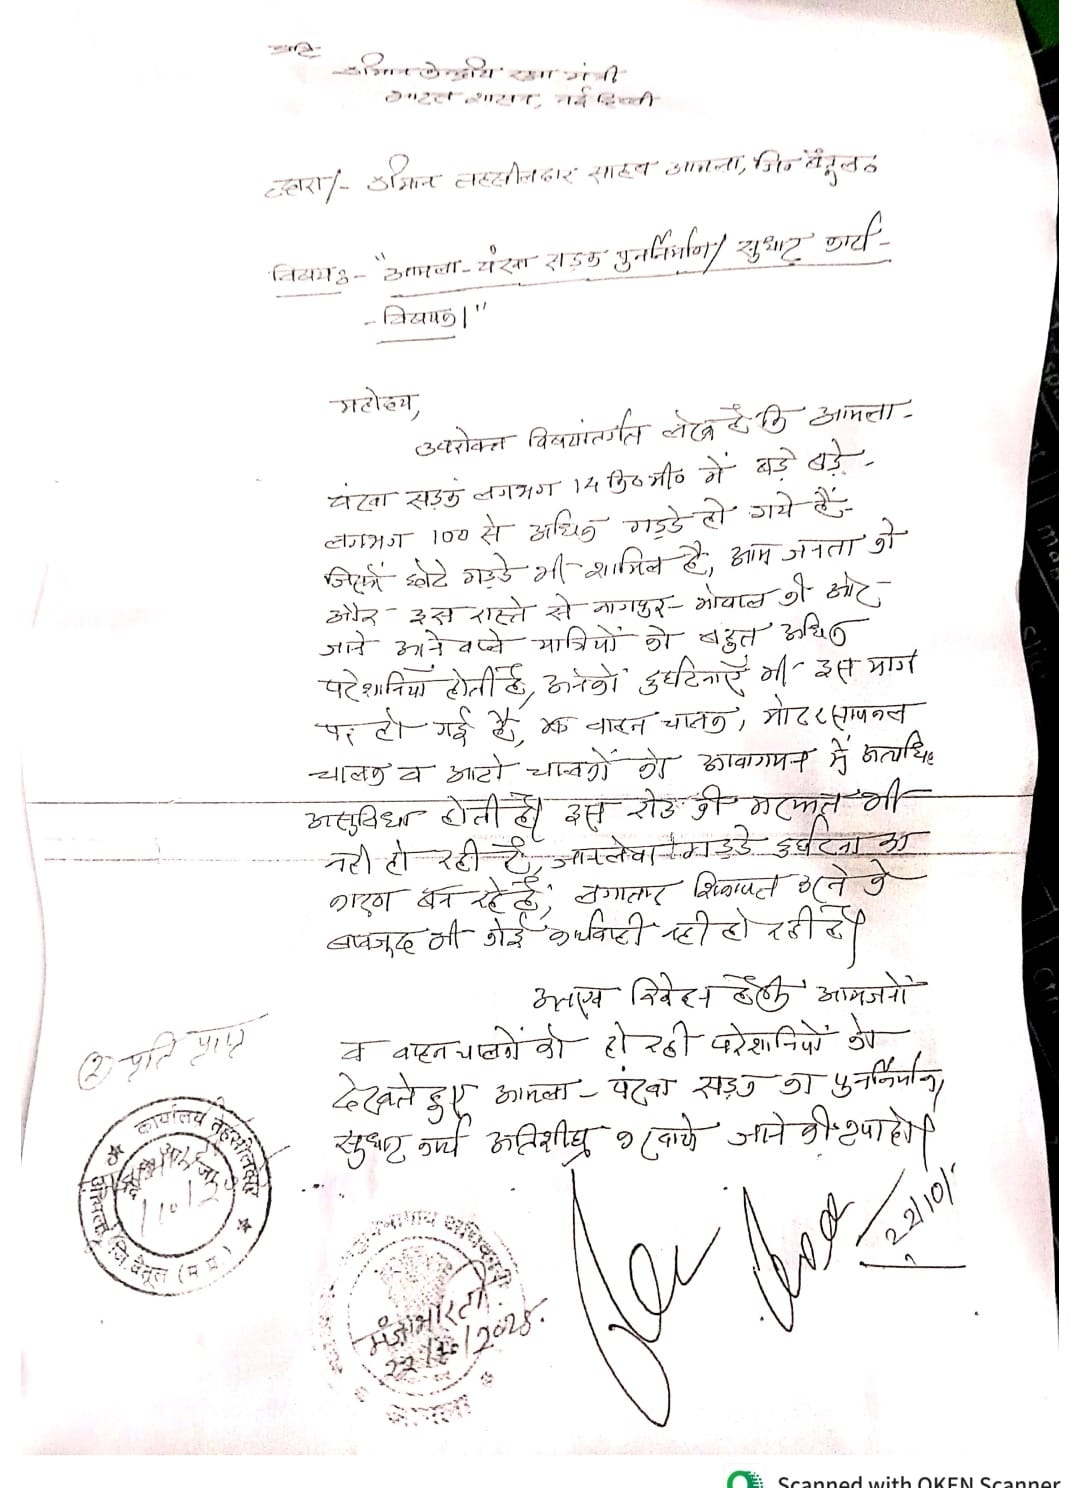 प्रति
श्रीमान केन्द्रीय रक्षा मंत्री
भारत शासन, नई दिल्ली
द्वारा/- श्रीमान तहसीलदार साहब आमला, जि० बैतूल
विषय:- "आमला-पंखा सड़क पुनर्निर्माण/ सुधार कार्य-
- विषयक।"
महोदय,
उपरोक्त विषयांतर्गत लेख है कि आमला-
पंखा सड़क लगभग 14 कि०मी० में बड़े बड़े-
लगभग 100 से अधिक गड्डे हो गये हैं-
जिसमें छोटे गड्डे भी शामिल है, आम जनता को
और इस रास्ते से नागपुर-भोपाल की ओर-
जाने आने वाले यात्रियों को बहुत अधिक
परेशानियाँ होती है, अनेकों दुर्घटनाएँ भी इस मार्ग
पर हो गई है, वाहन चालक, मोटरसायकल
चालक व आटो चालकों को आवागमन में अत्यधिक
असुविधा होती है। इस रोड की मरम्मत भी
नही हो रही है, जानलेवा गड्डे दुर्घटना का
कारण बन रहे है; लगातार शिकायत करने के
बावजूद भी कोई कार्यवाही नही हो रही है।
अतएव निवेदन है कि आमजनों
व वाहन चालकों को हो रही परेशानियों को
देखते हुए आमला-पंखा सड़क का पुनर्निर्माण,
सुधार कार्य अतिशीघ्र करवाये जाने की कृपा हो।
② प्रति प्राप्त
कार्यालय तेहसीलदार
जि. बैतूल (म.प्र.)
अधिकारी
22/10/2025.
22/10/
Scanned with OKEN Scanner